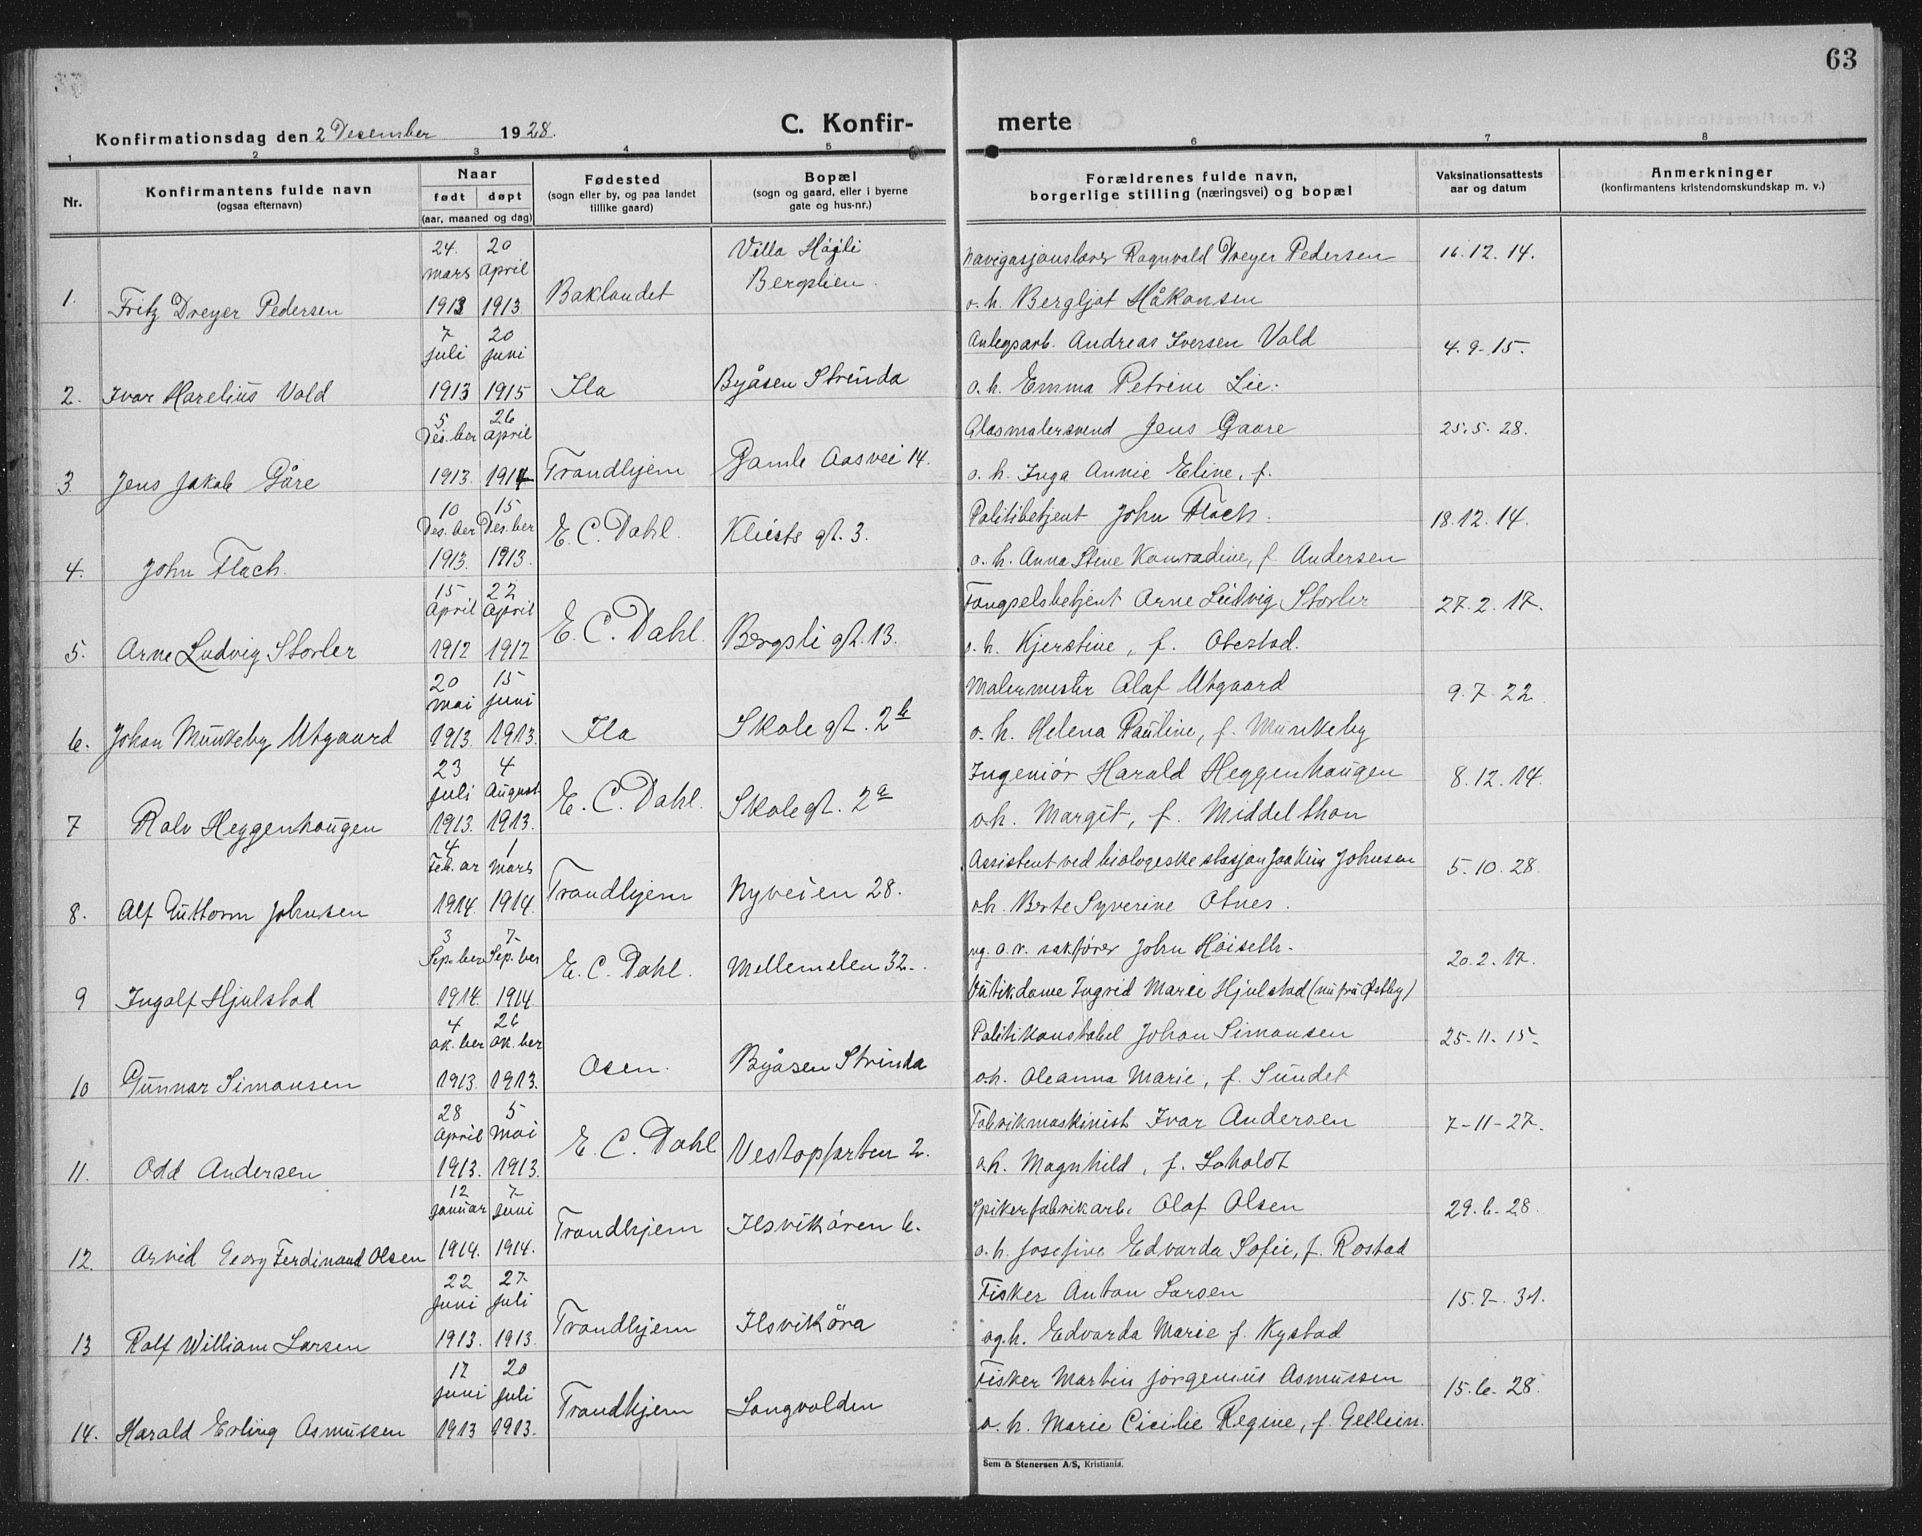 63
Konfirmationsdag den 2 Desember 1928.
C. Konfir-
merte
1 2 3 4 5 6 7 8
Nr.
Konfirmantens fulde navn
(ogsaa efternavn)
Naar
født døpt
(aar, maaned og dag)
Fødested
(sogn eller by, og paa landet
tillike gaard)
Bopæl
(sogn og gaard, eller i byerne
gate og hus-nr.)
Forældrenes fulde navn,
borgerlige stilling (næringsvei) og bopæl
Vaksinationsattests
aar og datum
Anmerkninger
(konfirmantens kristendomskundskap m. v.)
24. 20 Villa Högli Navigasjonslærer Ragnvald Dreyer Pedersen 16.12.14.
mars april Bergslien.
1. Fritz Dreyer Pedersen 1913 1913. Baklandet o. h. Bergljot Håkonsen
7 20 Anlegsarb. Andreas Iversen Vold 4.9-15.
juli juni
2. Ivar Harelius Vold 1913 1915 Ila Byåsen Strinda o. h. Emma Petrine Lie.
5 26 Glasmalersvend Jens Gaare 25.5-28.
Des.ber april
3. Jens Jakob Gåre 1913. 1914 Trondhjem Gamle Aasvei 14. o. h. Inga Annie Eline, f.
10 15 Politibetjent John Flach. 18.12.14.
Des.ber Des.ber E. C. Dahl. Kliests gt. 3.
4. John Flach. 1913. 1913. o. h. Anna Stine Konradine, f. Andersen
15 22 Fængselsbetjent Arne Ludvig Storler 27.2.17.
April April
5. Arne Ludvig Storler 1912 1912 E. C. Dahl. Bergsli gt. 13. o. h. Kjerstine, f. Obestad.
20 15 Malermester Olaf Utgaard 9.7-22
mai juni
6. Johan Munkeby Utgaard 1913. 1913. Ila Skole gt. 2b o. h. Helena Pauline, f. Munkeby
23 4 Ingeniør Harald Heggenhougen 8.12.14.
juli August
7 Rolv Heggenhougen 1913. 1913. E. C. Dahl. Skole gt. 2a o.h. Margit, f. Middelthon
4 1 Assistent ved biologiske stasjon Joakim Johnsen 5.10.28.
Feb.ar mars
8. Alf Guttorm Johnsen 1914. 1914. Trondhjem Nyveien 28. o.h. Berte Syverine Otnes.
3 7 ug. o. r. sakfører John Höiseth. 20.2.17.
Sep.ber Sep.ber E. C. Dahl. Mellemilen 32.
9 Ingolf Hjulstad 1914. 1914. Butikdame Ingrid Marie Hjulstad (nu fru Østby)
4 26 Politikonstabel Johan Simonsen 25-11-15.
ok.ber ok.ber
10 Gunnar Simonsen 1913. 1913. Osen. Byåsen Strinda o.h. Oleanna Marie, f. Sundet
28 5 Fabrikmaskinist Ivar Andersen 7-11-27.
April mai
11. Odd Andersen 1913. 1913. E. C. Dahl Vestopfarten 2. o.h. Magnhild, f. Loholdt
12 7 Spikerfabrikarb. Olaf Olsen 29.6-28.
januar juni
12. Arvid Georg Ferdinand Olsen 1914. 1914. Trondhjem Ilsvikören 6. o. h. Josefine Edvarda Sofie, f. Rostad
22 27 Fisker Anton Larsen 15.7-31.
juni juli
13 Rolf William Larsen 1913. 1913. Trondhjem Ilsviköra og.h. Edvarda Marie f. Nystad
17 20 Fisker Martin Jörgenius Asmussen 15.6-28.
juni juli
14. Harald Erling Asmussen 1913 1913. Trondhjem Langvolden o. h. Marie Cicilie Regine, f. Gellein.
Sem & Stenersen A/S, Kristiania.